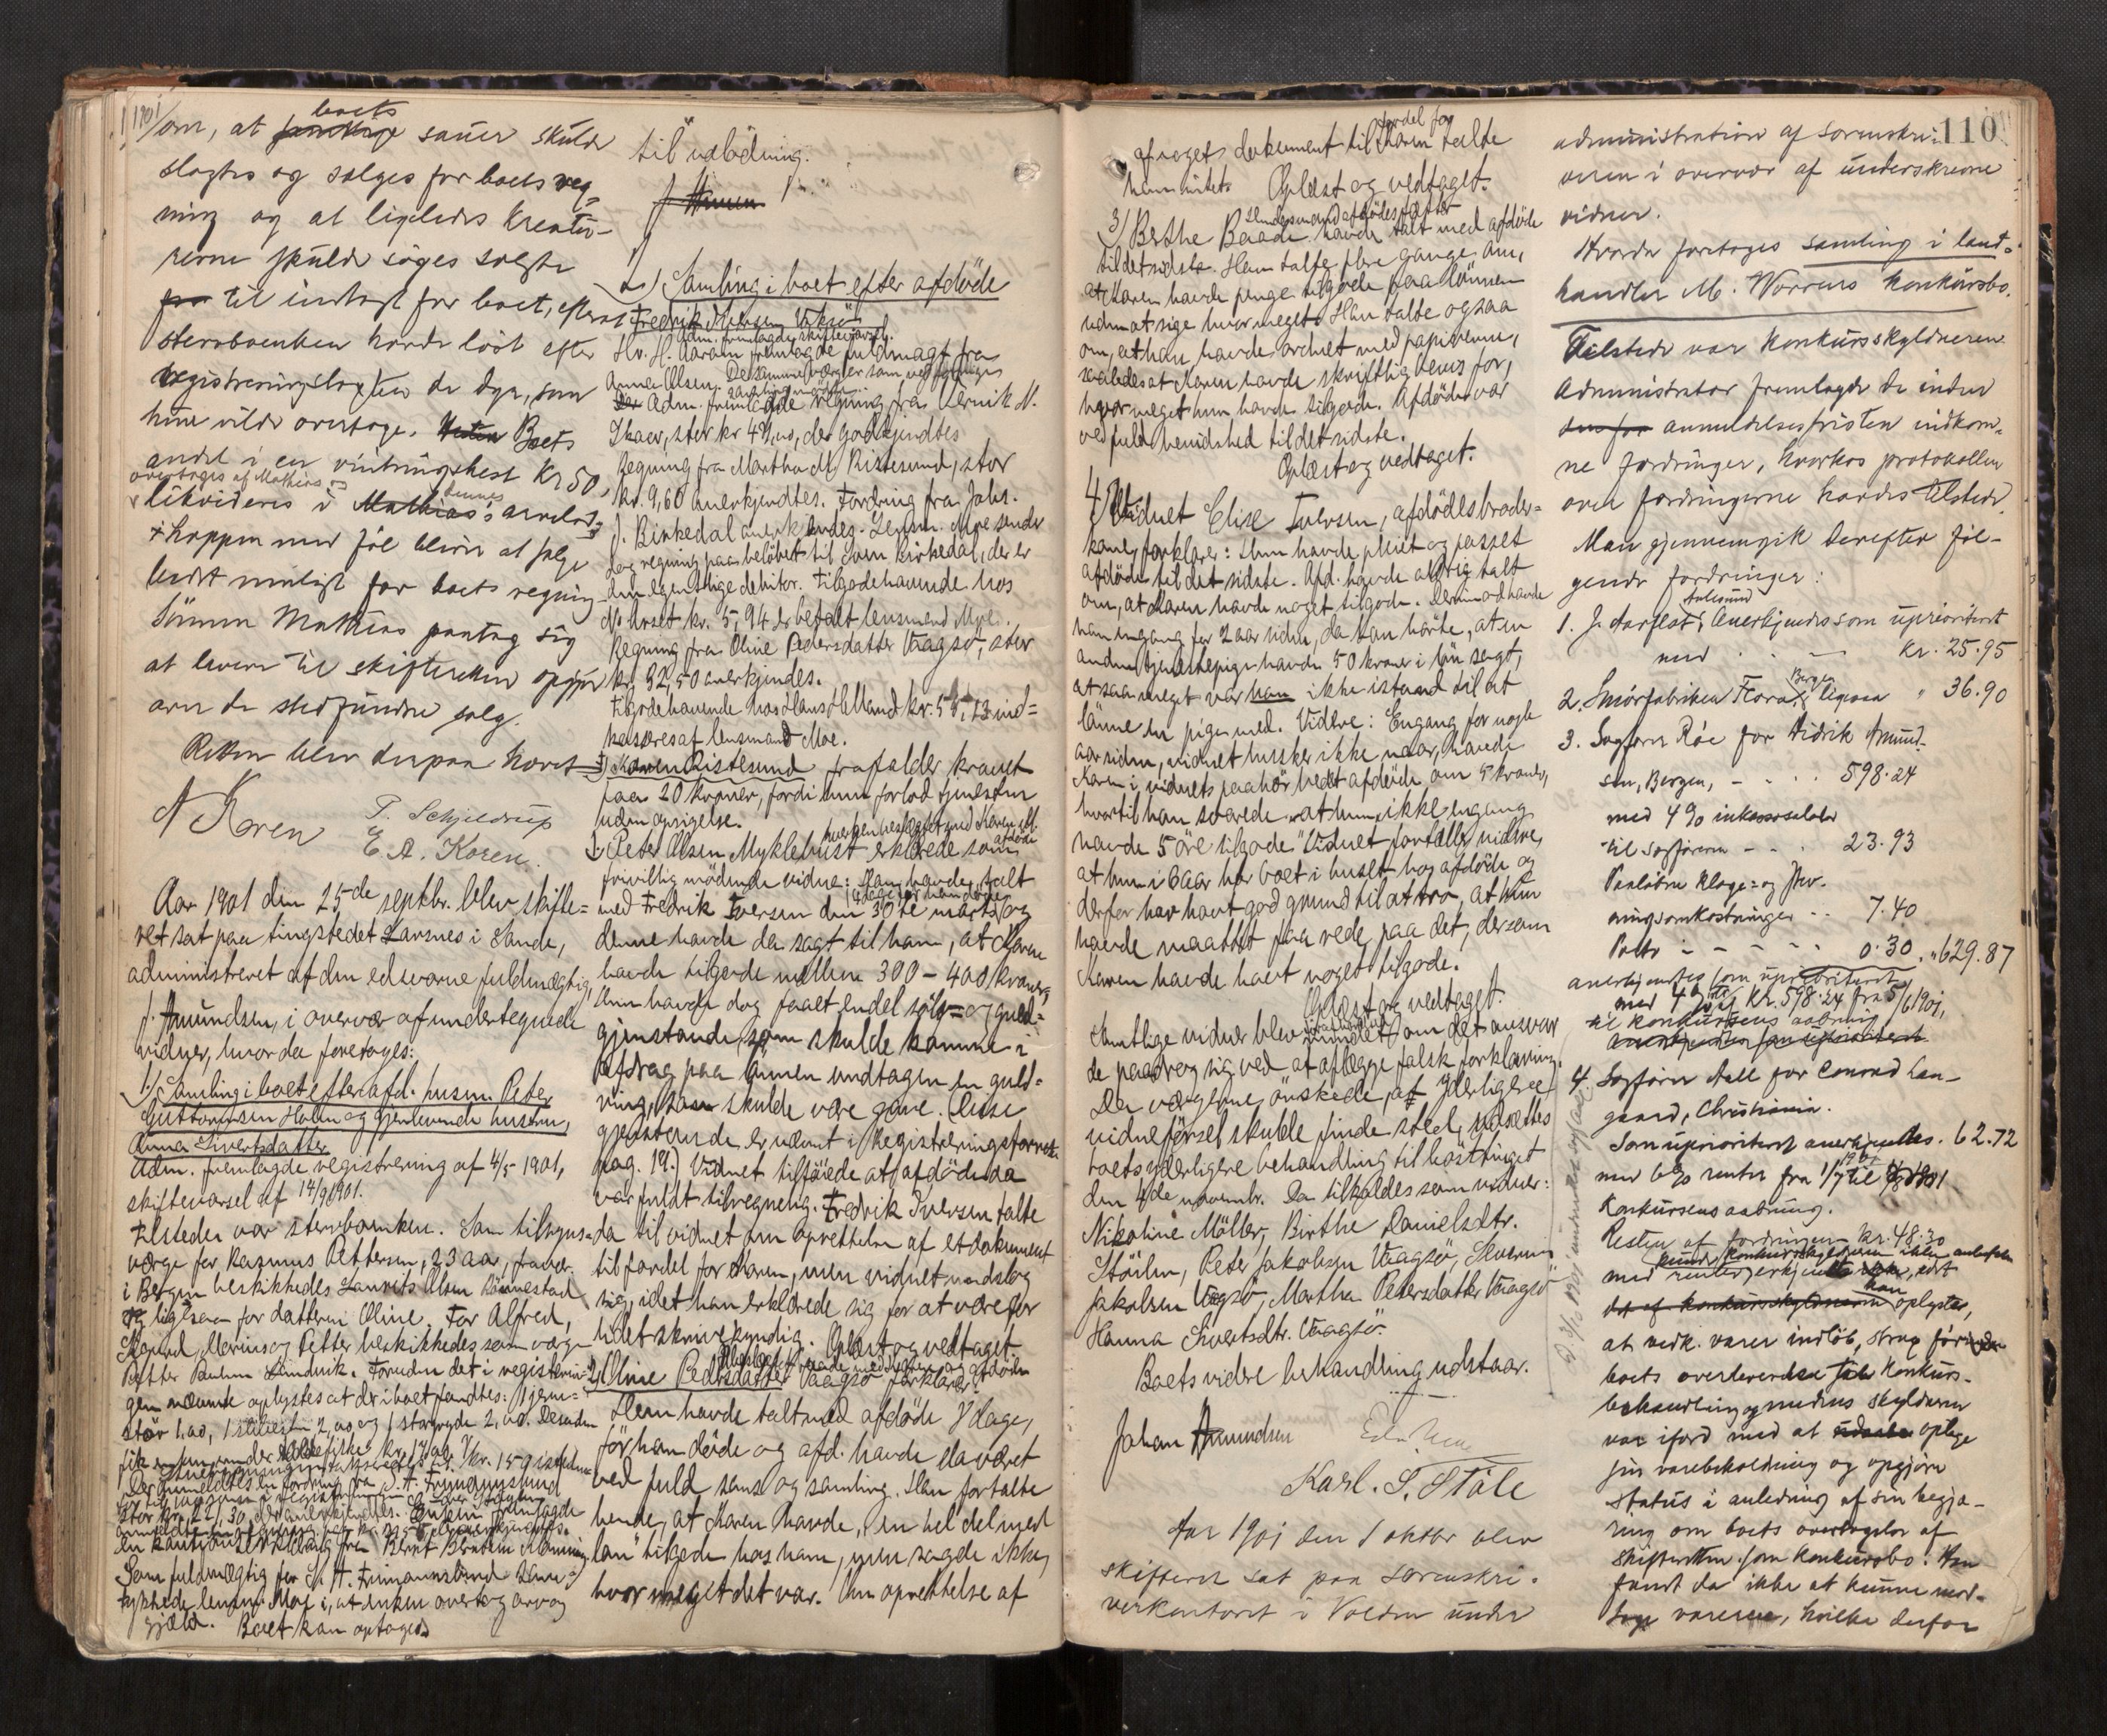 1901/
om, at boets sauer skulde
slagtes og sælges for boets reg-
ning og at ligeledes kreatu-
rerne skulde søges solgte
til indtægt for boet, efterat
stervboenken havde løst efter
registreringstaxten de dyr, som
hun vilde overtage. Boets
andel i en vintringshest kr 50,
overtages af Mathias og
likvideres i dennes arvelod
Hoppen med føl bliver at sælge
bedst muligt for boets regning
Sønnen Mathias paatog sig
at levere til skifteretten opgjør
over de stedfundne salg.
Retten blev derpaa hævet
N Koren T. Schjeldrup
E. A. Koren.
Aar 1901 den 25de septbr. blev skifte=
ret sat paa tingstedet Larsnes i Sande,
administreret af den edsvorne fuldmægtig,
J. Amundsen, i overvær af undertegnede
vidner, hvor da foretoges:
1.) Samling i boet efter afd. husm. Peter
Guttormsen Holen og gjenlevende hustru,
Anna Sivertsdatter
Adm. fremlagde registrering af 4/5 1901,
skiftevarsel af 14/9 1901.
Tilstede var stervboenken. Som tilsyns-
værge for Rasmus Pettersen, 23 aar, fravær.
i Bergen beskikkedes Laurits Olsen Rønnestad
og ligesaa for datteren Oline. For Alfred,
Sigurd, Marius og Petter beskikkedes som værge
Petter Paulsen Leinevik. Foruden det i registrerin-
gen nævnte oplystes at der i boet fandtes: 1 jern-
stør 1,00, 1 stileisen 2,00 og 1 stor gryde 2,00. Desuden
Der anmeldtes en fordring fra S. A. Frimannslund
stor kr. 22,30, der anerkjendtes. Enken fremlagde
en kautionserklæring fra Bernt Berntsen Rønning
Som fuldmægtig for S. A. Frimannslund sam-
tykkede lensm. Moe i, at enken overtog arv og
gjæld. Boet kan optages
til udlodning.
2.) Samling i boet efter afdøde
Fredrik Iversen Vaksø
Adm. fremlagde skiftevarsel.
Hr. H. Aaram fremlagde fuldmagt fra
Anna Olsen. De samme værger som ved forrige
samling mødte.
Adm. fremlagde regning fra Bernik N.
Skaer, stor kr 49,00, der godkjendtes
Regning fra Martha M. Ristesund, stor
kr. 9,60 anerkjendtes. Fordring fra Johs.
J. Birkedal anerkjendes. Lensm. Moe sender
dog regning paa beløbet til Sven Birkedal, der er
den egentlige debitor. Tilgodehavende hos
N. Urset kr. 5,94 er betalt lensmand Moe.
Regning fra Oline Pedersdatter Vaagsø, stor
kr. 32,50 anerkjendes.
Tilgodehavende hos Hans Helland kr. 54,13 ind-
kasseres af lensmand Moe.
Karen Ristesund frafalder kravet
paa 20 kroner, fordi hun forlod tjenesten
uden opsigelse.
1. Peter Olsen Myklebust, hverken beslægtet med Karen ell. afdøde
erklærede som
frivillig mødende vidne: Han havde talt
med Fredrik Iversen den 30te marts og
denne havde da sagt til ham, at Karen
havde tilgode mellem 300 - 400 kroner,
Hun havde dog faaet endel sølv- og guld-
gjenstande, som skulde komme i
afdrag paa lønnen undtagen en guld-
ring, som skulde være gave. Disse
gjenstande er nævnt i Registreringsforretn.
pag. 19.) Vidnet tilføiede at afdøde da
var fuldt tilregnelig. Fredrik Iversen talte
da til vidnet om oprettelse af et dokument
til fordel for Karen, men vidnet undslog
sig, idet han erklærede sig for at være for
lidet skrivekyndig. Oplæst og vedtaget.
2) Oline Pedersdatter Vaagsø forklarer:
Hun havde talt med afdøde 8 dage,
før han døde og afd. havde da været
ved fuld sans og samling. Han fortalte
hende, at Karen havde „en hel del med
løn“ tilgode hos ham, men sagde ikke,
hvor meget det var. Om oprettelse af
af noget dokument til fordel for Karen talte
han intet. Oplæst og vedtaget.
3) Berthe Baade, havde talt med afdøde
til det sidste. Han talte flere gange om,
at Karen havde penge tilgode paa lønnen
uden at sige hvor meget. Han talte ogsaa
om, at han havde ordnet med papirerne,
saaledes at Karen havde skriftlig bevis for,
hvor meget hun havde tilgode. Afdøde var
ved fuld bevidsthed til det sidste.
Oplæst og vedtaget.
4) Vidnet Elise Iversen, afdødes broder-
kone, forklarer: Hun havde pleiet og passet
afdøde til det sidste. Afd. havde aldrig talt
om, at Karen havde noget tilgode. Derimod havde
han engang for 2 aar siden, da han hørte, at en
anden tjenestepige havde 50 kroner i løn sagt,
at saa meget var han ikke istand til at
lønne en pige med. Videre: Engang for nogle
aar siden, vidnet husker ikke naar, havde
Karen i vidnets paahør bedt afdøde om 5 kroner,
hvortil han svarede „at hun ikke engang
havde 5 øre tilgode“. Vidnet fortæller videre,
at hun i 6 aar har boet i huset hos afdøde og
derfor har havt god grund til at tro, at hun
havde maattet faa rede paa det, dersom
Karen havde havt noget tilgode.
Oplæst og vedtaget.
Samtlige vidner blev mindet om det ansvar
de paadrog sig ved at aflægge falsk forklaring.
Da værgerne ønskede, at yderligere
vidneførsel skulde finde sted, udsættes
boets yderligere behandling til høsttinget
den 4de novembr. Da tilkaldes som vidner:
Nikoline Møller, Birthe Danielsdtr.
Støilen, Peter Jakobsen Vaagsø, Severin
Jakobsen Vaagsø, Martha Petersdatter Vaagsø
Hanna Sivertsdtr. Vaagsø.
Boets videre behandling udstaar.
Johan Amundsen
Karl. S. Ståle
Aar 1901 den 1 oktbr blev
skifteret sat paa sorenskri-
verkontoret i Volden under
110
administration af sorenskri-
veren i overvær af underskrevne
vidner.
Hvorda foretoges samling i land-
handler M. Worrens konkursbo.
Tilstede var konkursskyldneren
Administrator fremlagde de inden
anmeldelsesfristen indkom-
ne fordringer, hvorhos protokollen
over fordringerne havdes tilstede
Man gjennemgik derefter føl-
gende fordringer:
1. J. Aarflot, Aalesund Anerkjendes som uprioriteret
med kr. 25.95
2. Smørfabriken Flora, Bergen ligesaa " 36.90
3. Sagfører Røe for Didrik Amund-
sen, Bergen, - 598.24
med 4% inkassosalær
til sagføreren - - 23.93
Paaløbne klage- og stev-
ningsomkostninger - - 7.40
Porto - - - - 0.30 " 629.87
anerkjendtes som uprioriteret
med 4% af kr. 598.24 fra 5/6 1901,
til konkursens aabning
4. Sagfører Aall for Conrad Lan-
gaard, Christiania.
Som uprioriteret anerkjendtes. 62.72
med 6% renter fra 1/7 1901 til
konkursens aabning.
Resten af fordringen kr. 48.30
med renter kunde konkursskyldneren ikke anbefale
oplyster,
at vedk. varer indløb, strax før
boets overleverelse til konkurs-
behandling og medens skyldneren
var ifærd med at oplage
sin varebeholdning og opgjøre
status i anledning af sin begjæ-
ring om boets overtagelse af
skifteretten som konkursbo. Han
fandt da ikke at kunne mod-
tage varerne, hvilke derfor